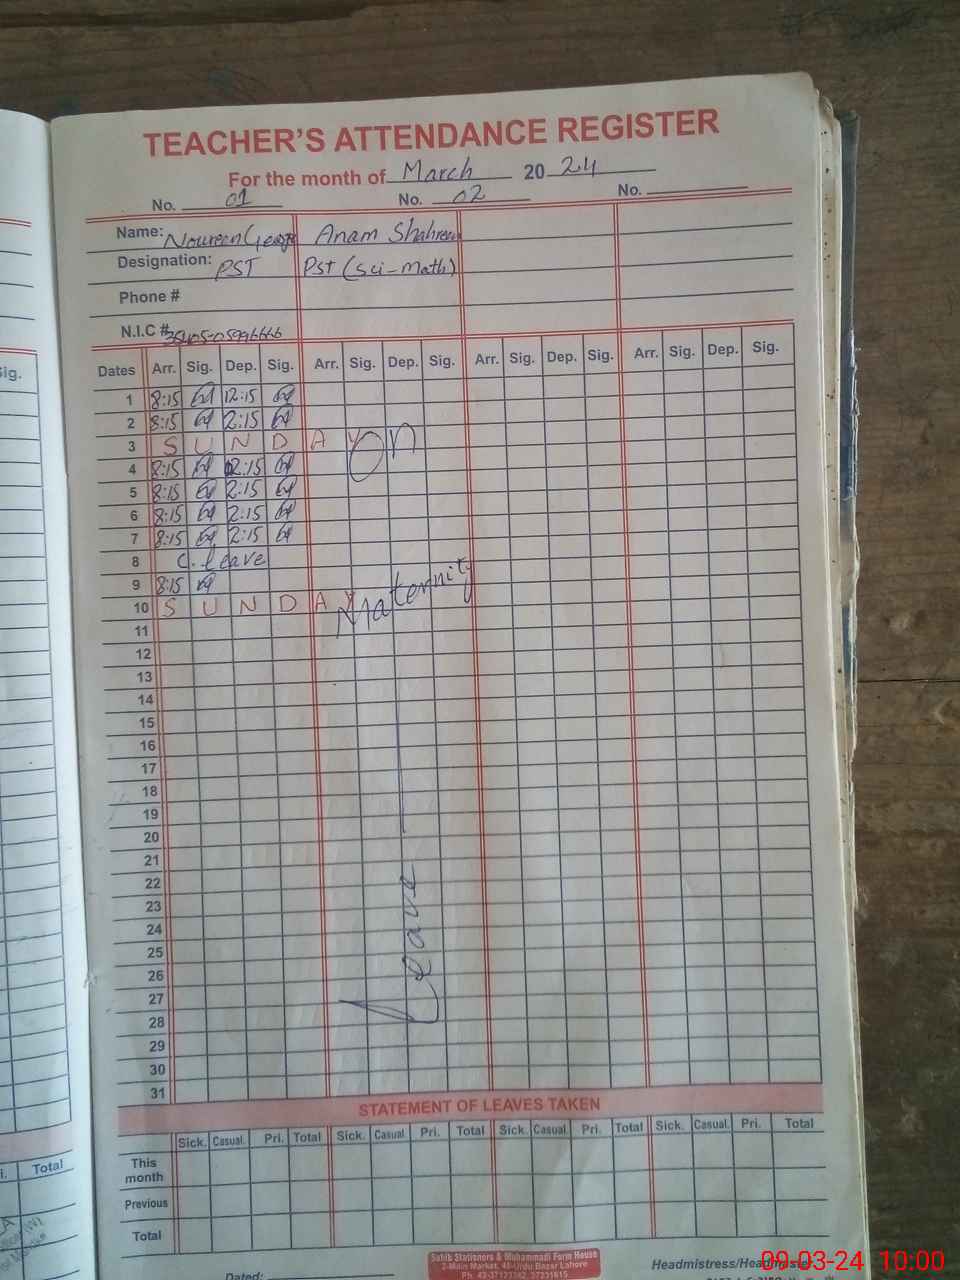 TEACHER'S ATTENDANCE REGISTER
For the month of March 2024
No. 01 No. 02 No.
Name: Noureen George Anam Shahreen
Designation: PST Pst (Sci-Math)
Phone #
N.I.C #
Dates Arr. Sig. Dep. Sig. Arr. Sig. Dep. Sig. Arr. Sig. Dep. Sig. Arr. Sig. Dep. Sig.
1 8:15 12:15
2 8:15 2:15
3 S U N D A Y on
4 8:15 2:15
5 8:15 2:15
6 8:15 2:15
7 8:15 2:15
8 C. leave
9 8:15
10 S U N D A Y Maternity
11
12
13
14
15
16
17
18
19
20
21
22
23
24
25 Leave
26
27
28
29
30
31
STATEMENT OF LEAVES TAKEN
Sick. Casual. Pri. Total Sick. Casual. Pri. Total Sick. Casual. Pri. Total Sick. Casual. Pri. Total
This month
Previous
Total
Sahib Stationers & Muhammadi Form House
2-Main Market, 40-Urdu Bazar Lahore
Dated: Headmistress/Headmaster
Sig.
Total
09-03-24 10:00